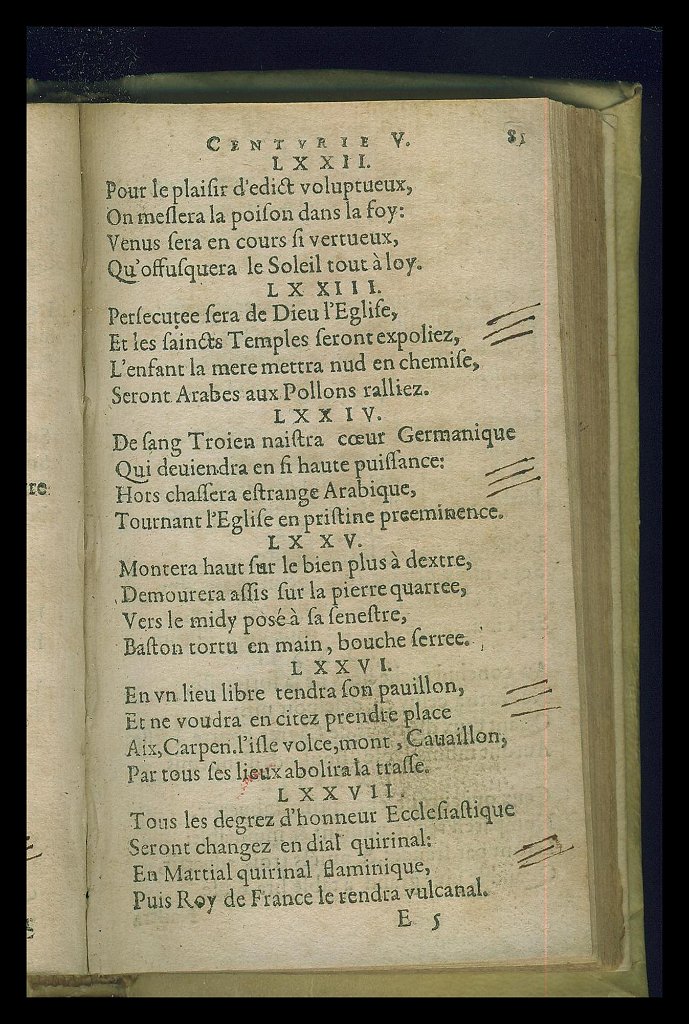 CENTVRIE V. 81
LXXII.
Pour le plaiſir d'edict voluptueux,
On meſlera la poiſon dans la foy:
Venus ſera en cours ſi vertueux,
Qu'offuſquera le Soleil tout à loy.
LXXIII.
Perſecutee ſera de Dieu l'Egliſe,
Et les ſaincts Temples ſeront expoliez,
L'enfant la mere mettra nud en chemiſe,
Seront Arabes aux Pollons ralliez.
LXXIV.
De ſang Troien naiſtra cœur Germanique
Qui deuiendra en ſi haute puiſſance:
Hors chaſſera eſtrange Arabique,
Tournant l'Egliſe en priſtine preeminence.
LXXV.
Montera haut ſur le bien plus à dextre,
Demourera aſſis ſur la pierre quarree,
Vers le midy poſé à ſa feneſtre,
Baſton tortu en main, bouche ſerree.
LXXVI.
En vn lieu libre tendra ſon pauillon,
Et ne voudra en citez prendre place
Aix, Carpen. l'iſle volce, mont, Cauaillon,
Par tous ſes lieux abolira la traſſe.
LXXVII.
Tous les degrez d'honneur Eccleſiaſtique
Seront changez en dial quirinal:
En Martial quirinal flaminique,
Puis Roy de France le rendra vulcanal.
E 5
re